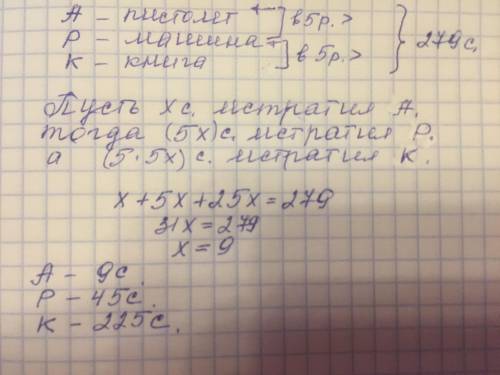 А – пистолет ← ] в 5 р. >
Р – машина ← ] в 5 р. > } 279 с.
К – книга
Пусть х с. истратил А.
тогда (5х) с. истратил Р.
а (5·5х) с. истратил К.
х + 5х + 25х = 279
31х = 279
х = 9
А – 9с.
Р – 45с.
К – 225с.